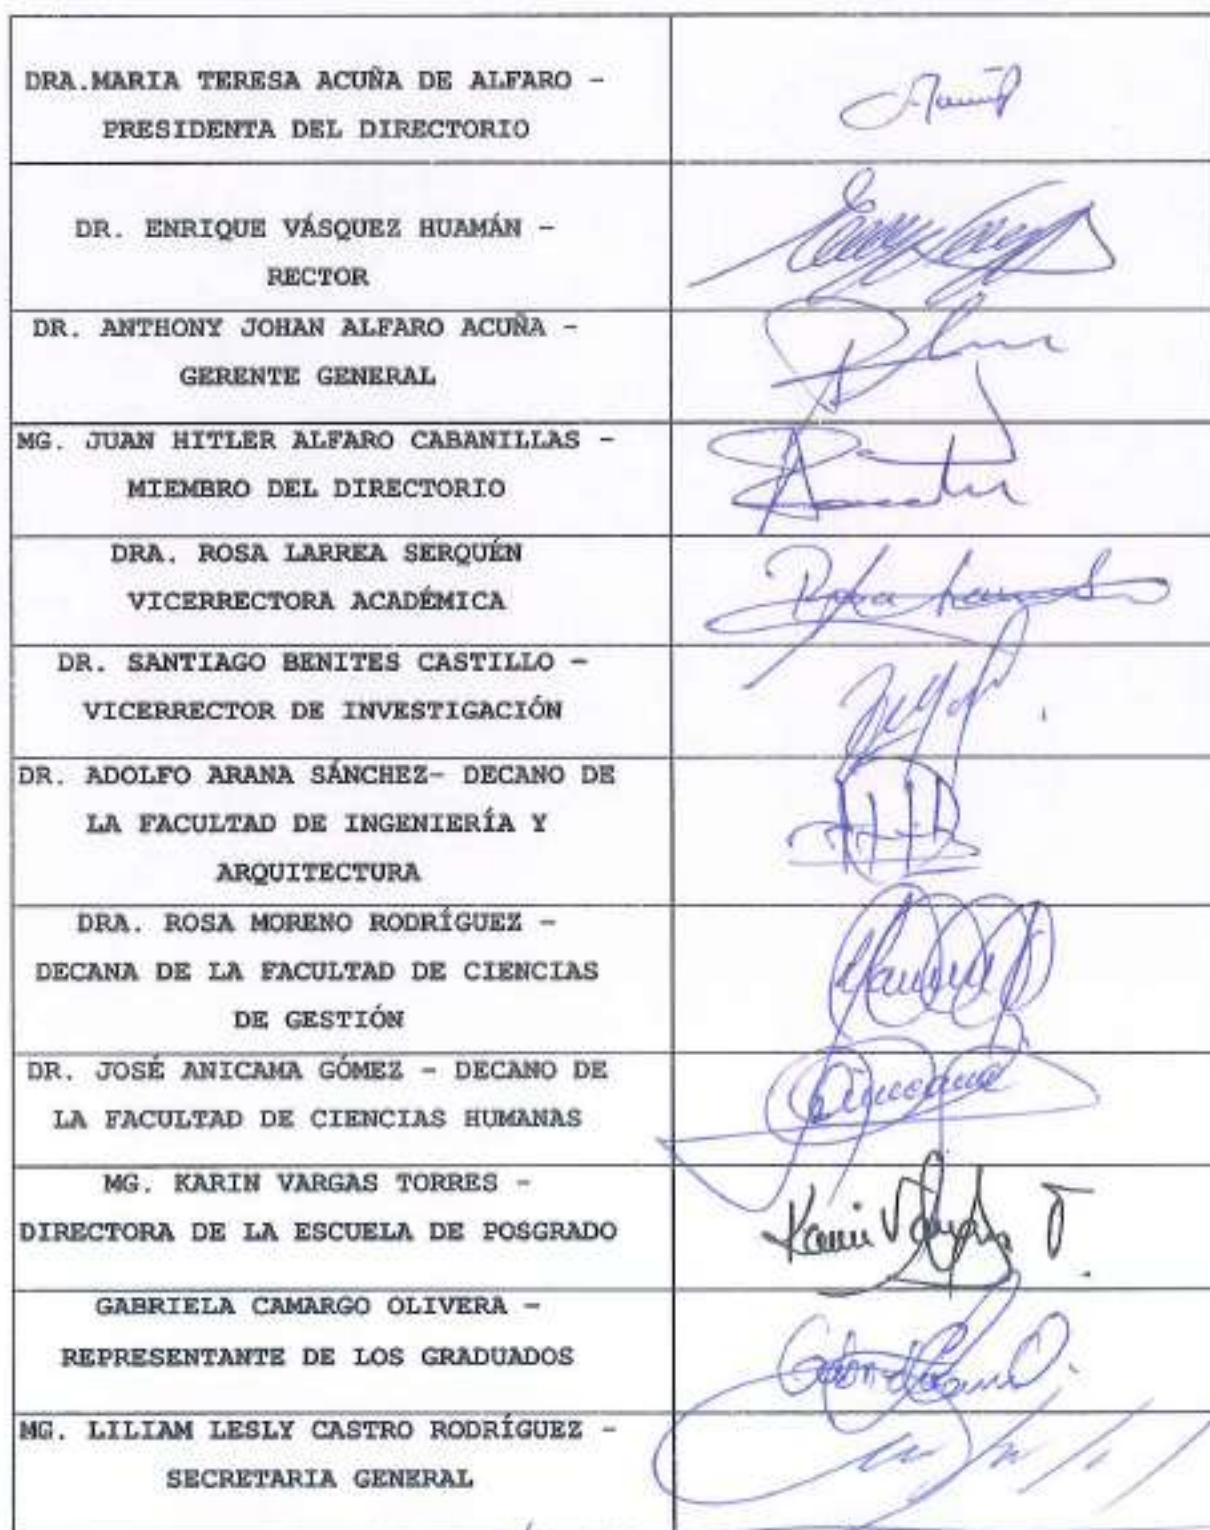 DRA.MARIA TERESA ACUÑA DE ALFARO –
PRESIDENTA DEL DIRECTORIO
DR. ENRIQUE VÁSQUEZ HUAMÁN –
RECTOR
DR. ANTHONY JOHAN ALFARO ACUÑA –
GERENTE GENERAL
MG. JUAN HITLER ALFARO CABANILLAS –
MIEMBRO DEL DIRECTORIO
DRA. ROSA LARREA SERQUÉN
VICERRECTORA ACADÉMICA
DR. SANTIAGO BENITES CASTILLO –
VICERRECTOR DE INVESTIGACIÓN
DR. ADOLFO ARANA SÁNCHEZ– DECANO DE
LA FACULTAD DE INGENIERÍA Y
ARQUITECTURA
DRA. ROSA MORENO RODRÍGUEZ –
DECANA DE LA FACULTAD DE CIENCIAS
DE GESTIÓN
DR. JOSÉ ANICAMA GÓMEZ – DECANO DE
LA FACULTAD DE CIENCIAS HUMANAS
MG. KARIN VARGAS TORRES –
DIRECTORA DE LA ESCUELA DE POSGRADO
Karin Vargas T.
GABRIELA CAMARGO OLIVERA –
REPRESENTANTE DE LOS GRADUADOS
MG. LILIAM LESLY CASTRO RODRÍGUEZ –
SECRETARIA GENERAL